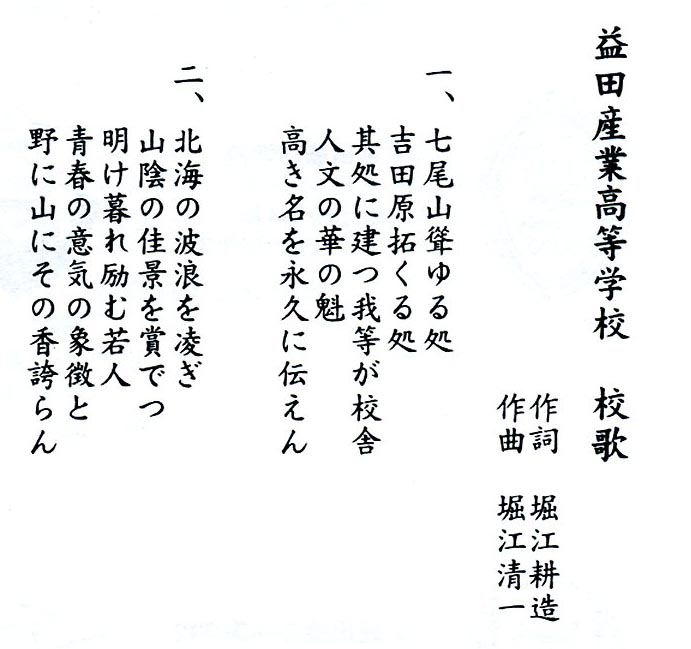 益田産業高等学校　校歌
作詞　堀江耕造
作曲　堀江清一
一、七尾山聳ゆる処
吉田原拓くる処
其処に建つ我等が校舎
人文の華の魁
高き名を永久に伝えん
二、北海の波浪を凌ぎ
山陰の佳景を賞でつ
明け暮れ励む若人
青春の意気の象徴と
野に山にその香誇らん